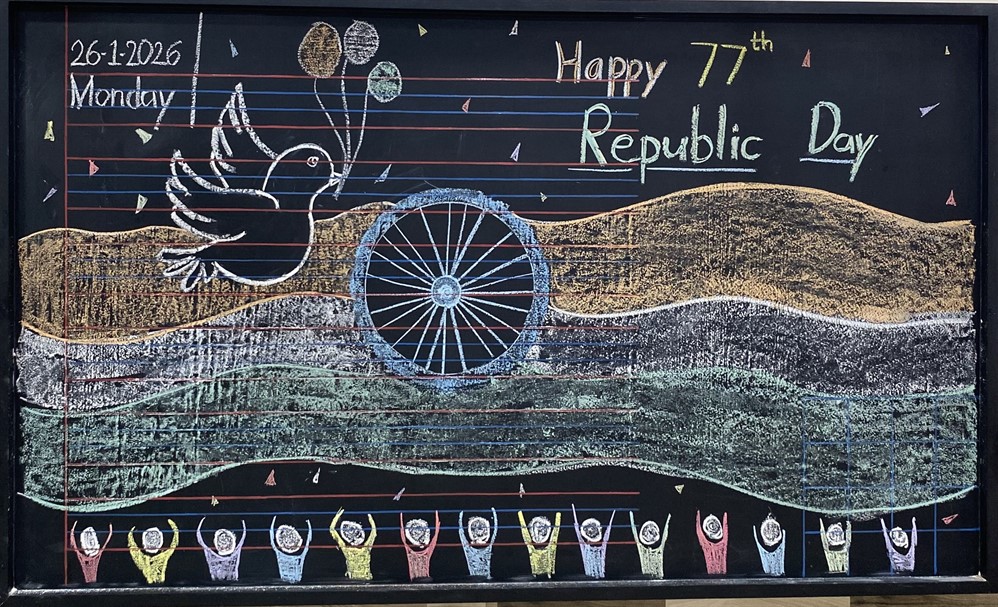 26-1-2026
Monday
Happy 77th
Republic Day